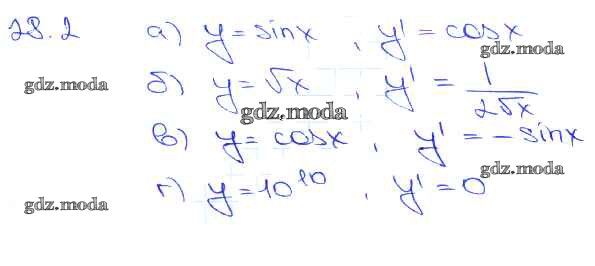 28.2 а) y = sinx , y' = cosx
gdz.moda
gdz.moda б) y = √x , y' = 1/(2√x)
gdz.moda
в) y = cosx , y' = -sinx
gdz.moda
г) y = 10¹⁰ , y' = 0
gdz.moda